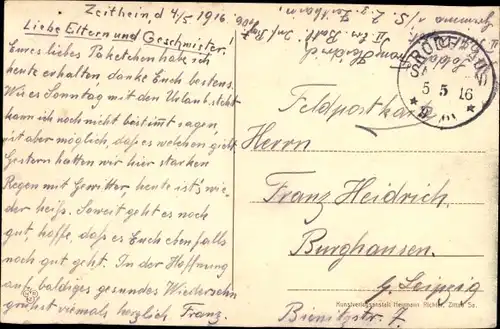 Zeithein, d 4/5 1916.
Liebe Eltern und Geschwister!
Eures liebes Paketchen habe ich
heute erhalten danke Euch bestens.
Wie es Sonntag mit den Urlaub steht
kann ich noch nicht bestimt sagen,
ist aber möglich, daß es welchen giebt
Gestern hatten wir hier starken
Regen mit Gewitter heute ist's wie-
der heiß. Soweit geht es noch
gut, hoffe, daß es Euch ebenfalls
noch gut geht. In der Hoffnung
auf baldiges gesundes Wiedersehn
grüßst viemals herzlich Franz.
5 5 16
Feldpostkarte
Herrn
Franz Heidrich.
Burghausen.
b/ Leipzig
Bienitzstr. 7
Kunstverlagsanstalt Hermann Richter, Zittau Sa.